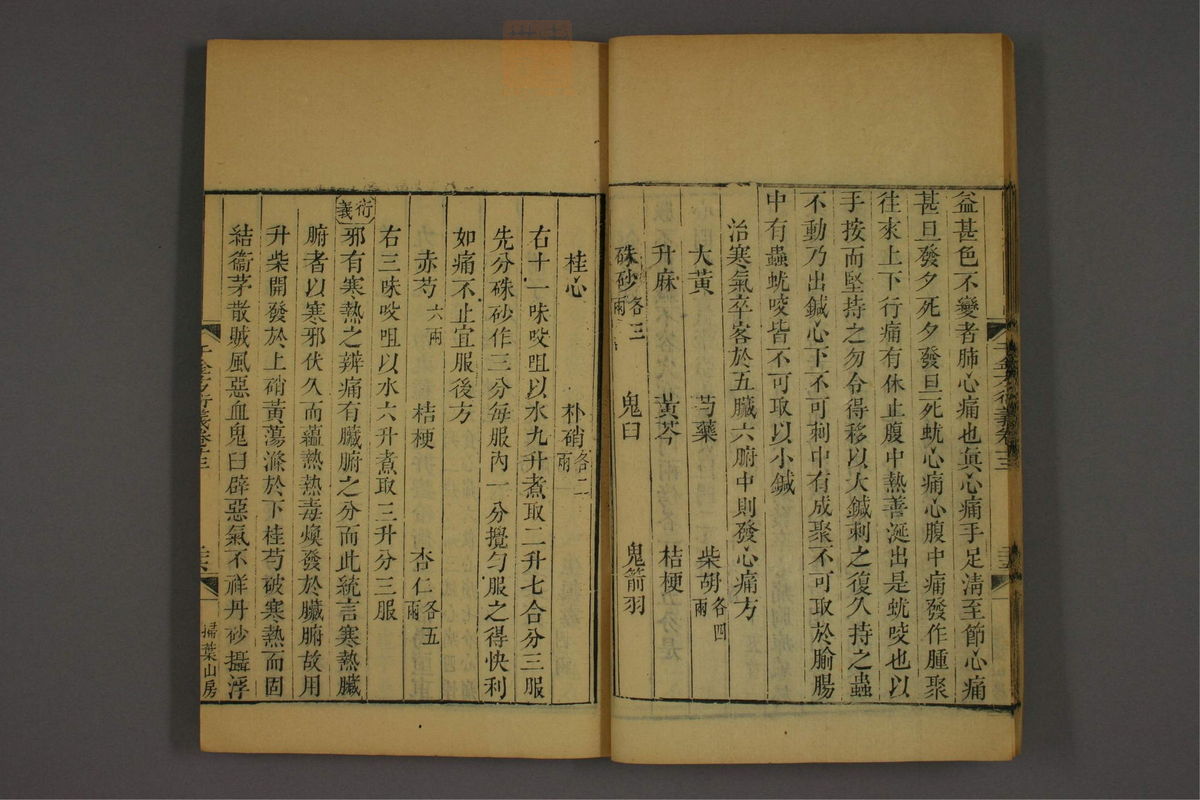 益甚色不變者肺心痛也眞心痛手足淸至節心痛
甚旦發夕死夕發旦死蚘心痛心腹中痛發作腫聚
往來上下行痛有休止腹中熱善涎出是蚘咬也以
手按而堅持之勿令得移以大鍼刺之復久持之蟲
不動乃出鍼心下不可刺中有成聚不可取於腧腸
中有蟲蚘咬皆不可取以小鍼
治寒氣卒客於五臟六腑中則發心痛方
大黃 芍藥 柴胡各四兩
升麻 黃芩 桔梗
硃砂各三兩 鬼臼 鬼箭羽
桂心 朴硝各二兩
右十一味㕮咀以水九升煮取二升七合分三服
先分硃砂作三分每服內一分攪勻服之得快利
如痛不止宜服後方
赤芍六兩 桔梗 杏仁各五兩
右三味㕮咀以水六升煮取三升分三服
衍義
邪有寒熱之辨痛有臟腑之分而此統言寒熱臟
腑者以寒邪伏久而蘊熱熱毒煥發於臟腑故用
升柴開發於上硝黃蕩滌於下桂芍破寒熱而固
結衞茅散賊風惡血鬼臼辟惡氣不祥丹砂攝浮
千金方衍義卷十三
掃葉山房